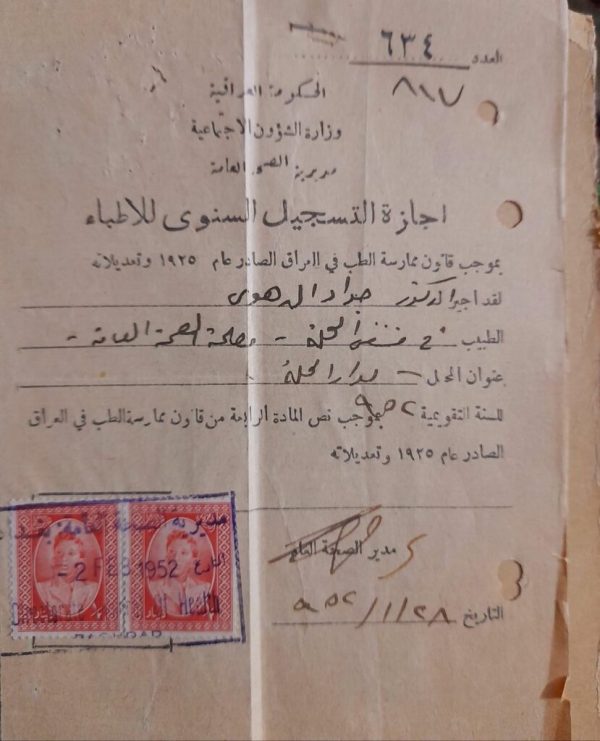 العدد ٦٣٤
٨١٧
الحكومة العراقية
وزارة الشؤون الاجتماعية
مديرية الصحة العامة
اجازة التسجيل السنوى للاطباء
بموجب قانون ممارسة الطب في العراق الصادر عام ١٩٢٥ وتعديلاته
لقد اجيز الدكتور جواد
الطبيب في الحلة - الصحة العامة -
بعنوان المحل - الحلة
للسنة التقويمية ٩٥٢ بموجب نص المادة الرابعة من قانون ممارسة الطب في العراق
الصادر عام ١٩٢٥ وتعديلاته
مدير الصحة العام
التاريخ ٩٥٢/١/٢٨
مديرية الصحة العامة بغداد
- 2 FEB 1952
Directorate of Health
BAGHDAD